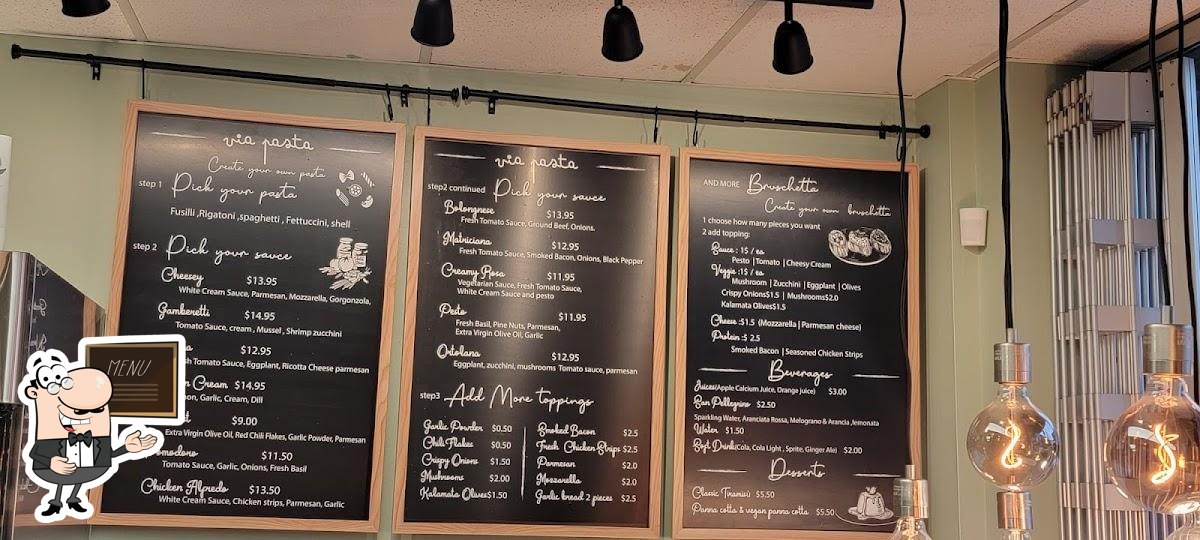 via pasta
Create your own pasta
step 1 Pick your pasta
Fusilli ,Rigatoni ,spaghetti , Fettuccini, shell
step 2 Pick your sauce
Cheesey $13.95
White Cream Sauce, Parmesan, Mozzarella, Gorgonzola,
Gamberetti $14.95
Tomato Sauce, cream , Mussel , Shrimp zucchini
$12.95
Tomato Sauce, Eggplant, Ricotta Cheese parmesan
Cream $14.95
Garlic, Cream, Dill
$9.00
Extra Virgin Olive Oil, Red Chili Flakes, Garlic Powder, Parmesan
$11.50
Tomato Sauce, Garlic, Onions, Fresh Basil
Chicken Alfredo $13.50
White Cream Sauce, Chicken strips, Parmesan, Garlic
MENU
via pasta
step2 continued Pick your sauce
Bolongnese $13.95
Fresh Tomato Sauce, Ground Beef, Onions.
Matriciana $12.95
Fresh Tomato Sauce, Smoked Bacon, Onions, Black Pepper
Creamy Rosa $11.95
Vegetarian Sauce, Fresh Tomato Sauce,
White Cream Sauce and pesto
Pesto $11.95
Fresh Basil, Pine Nuts, Parmesan,
Extra Virgin Olive Oil, Garlic
Ortolana $12.95
Eggplant, zucchini, mushrooms Tomato sauce, parmesan
step3 Add More toppings
Garlic Powder $0.50
Chili Flakes $0.50
Crispy Onions $1.50
Mushrooms $2.00
Kalamata Olives $1.50
Smoked Bacon $2.5
Fresh Chicken Strips $2.5
Parmesan $2.0
Mozzarella $2.0
Garlic bread 2 pieces $2.5
AND MORE Bruschetta
Create your own bruschetta
1 choose how many pieces you want
2 add topping:
Sauce : 1$ / ea
Pesto | Tomato | Cheesy Cream
Veggie :1$ / ea
Mushroom | Zucchini | Eggplant | Olives
Crispy Onions$1.5 | Mushrooms$2.0
Kalamata Olives$1.5
Cheese :$1.5 (Mozzarella | Parmesan cheese)
Protein :$ 2.5
Smoked Bacon | Seasoned Chicken Strips
Beverages
Juices(Apple Calcium Juice, Orange juice) $3.00
San Pellegrino $2.50
Sparkling Water, Aranciata Rossa, Melograno & Arancia ,lemonata
Water $1.50
Soft Drink(Cola, Cola Light , Sprite, Ginger Ale) $2.00
Desserts
Classic Tiramisù $5.50
Panna cotta & vegan panna cotta $5.50